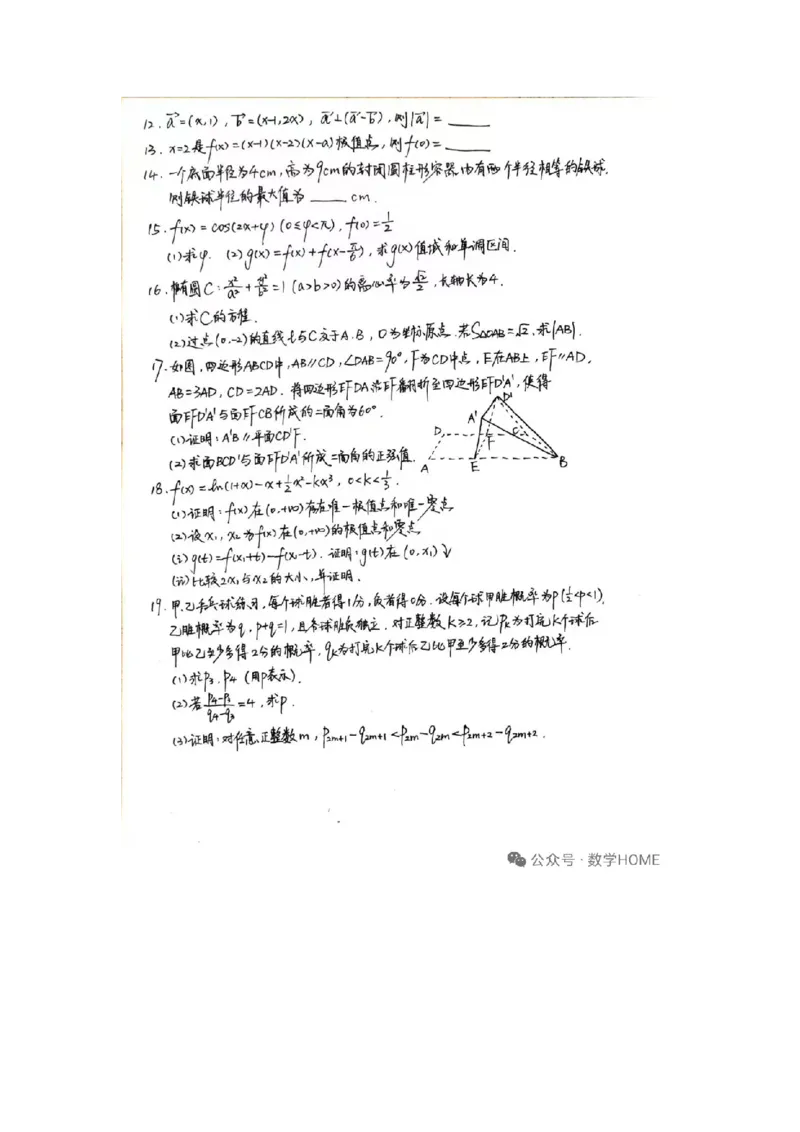 12. a⃗=(x,1), b⃗=(x-1,2x), a⃗⊥(a⃗-b⃗), 则|a⃗|= ____
13. x=2是f(x)=(x-1)(x-2)(x-a)极值点, 则f(0)= ____
14. 一个底面半径为4cm, 高为9cm的封闭圆柱形容器内有两个半径相等的铁球,
则铁球半径的最大值为 ____ cm.
15. f(x)=cos(2x+φ) (0≤φ<π), f(0)=1/2
(1)求φ. (2)g(x)=f(x)+f(x-π/6), 求g(x)值域和单调区间.
16. 椭圆C: x²/a²+y²/b²=1 (a>b>0)的离心率为√2/2, 长轴长为4.
(1)求C的方程.
(2)过点(0,-2)的直线l与C交于A.B, O为坐标原点. 若S△OAB=√2, 求|AB|.
17. 如图, 四边形ABCD中, AB//CD, ∠DAB=90°, F为CD中点, E在AB上, EF//AD,
AB=3AD, CD=2AD. 将四边形EFDA沿EF翻折至四边形EFD'A', 使得
面EFD'A'与面EFCB所成的二面角为60°.
(1)证明: A'B//平面CD'F.
(2)求面BCD'与面EFD'A'所成二面角的正弦值.
D'
A'
D
F
C
A
E
B
18. f(x)=ln(1+x)-x+½x²-kx³, 0<k<1/3.
(1)证明: f(x)在(0,+∞)存在唯一极值点和唯一零点
(2)设x₁, x₂为f(x)在(0,+∞)的极值点和零点
(i) g(t)=f(x₁+t)-f(x₁-t). 证明: g(t)在(0,x₁)↓
(ii)比较2x₁与x₂的大小, 并证明.
19. 甲.乙乒乓球练习, 每个球胜者得1分, 负者得0分. 设每个球甲胜概率为p(½<p<1),
乙胜概率为q, p+q=1, 且各球胜负独立. 对正整数k≥2, 记pₖ为打完k个球后
甲比乙至少多得2分的概率, qₖ为打完k个球后乙比甲至少多得2分的概率.
(1)求p₃, p₄ (用p表示).
(2)若 (p₄-p₃)/(q₄-q₃)=4, 求p.
(3)证明: 对任意正整数m, p₂ₘ₊₁-q₂ₘ₊₁<p₂ₘ-q₂ₘ<p₂ₘ₊₂-q₂ₘ₊₂.
公众号·数学HOME